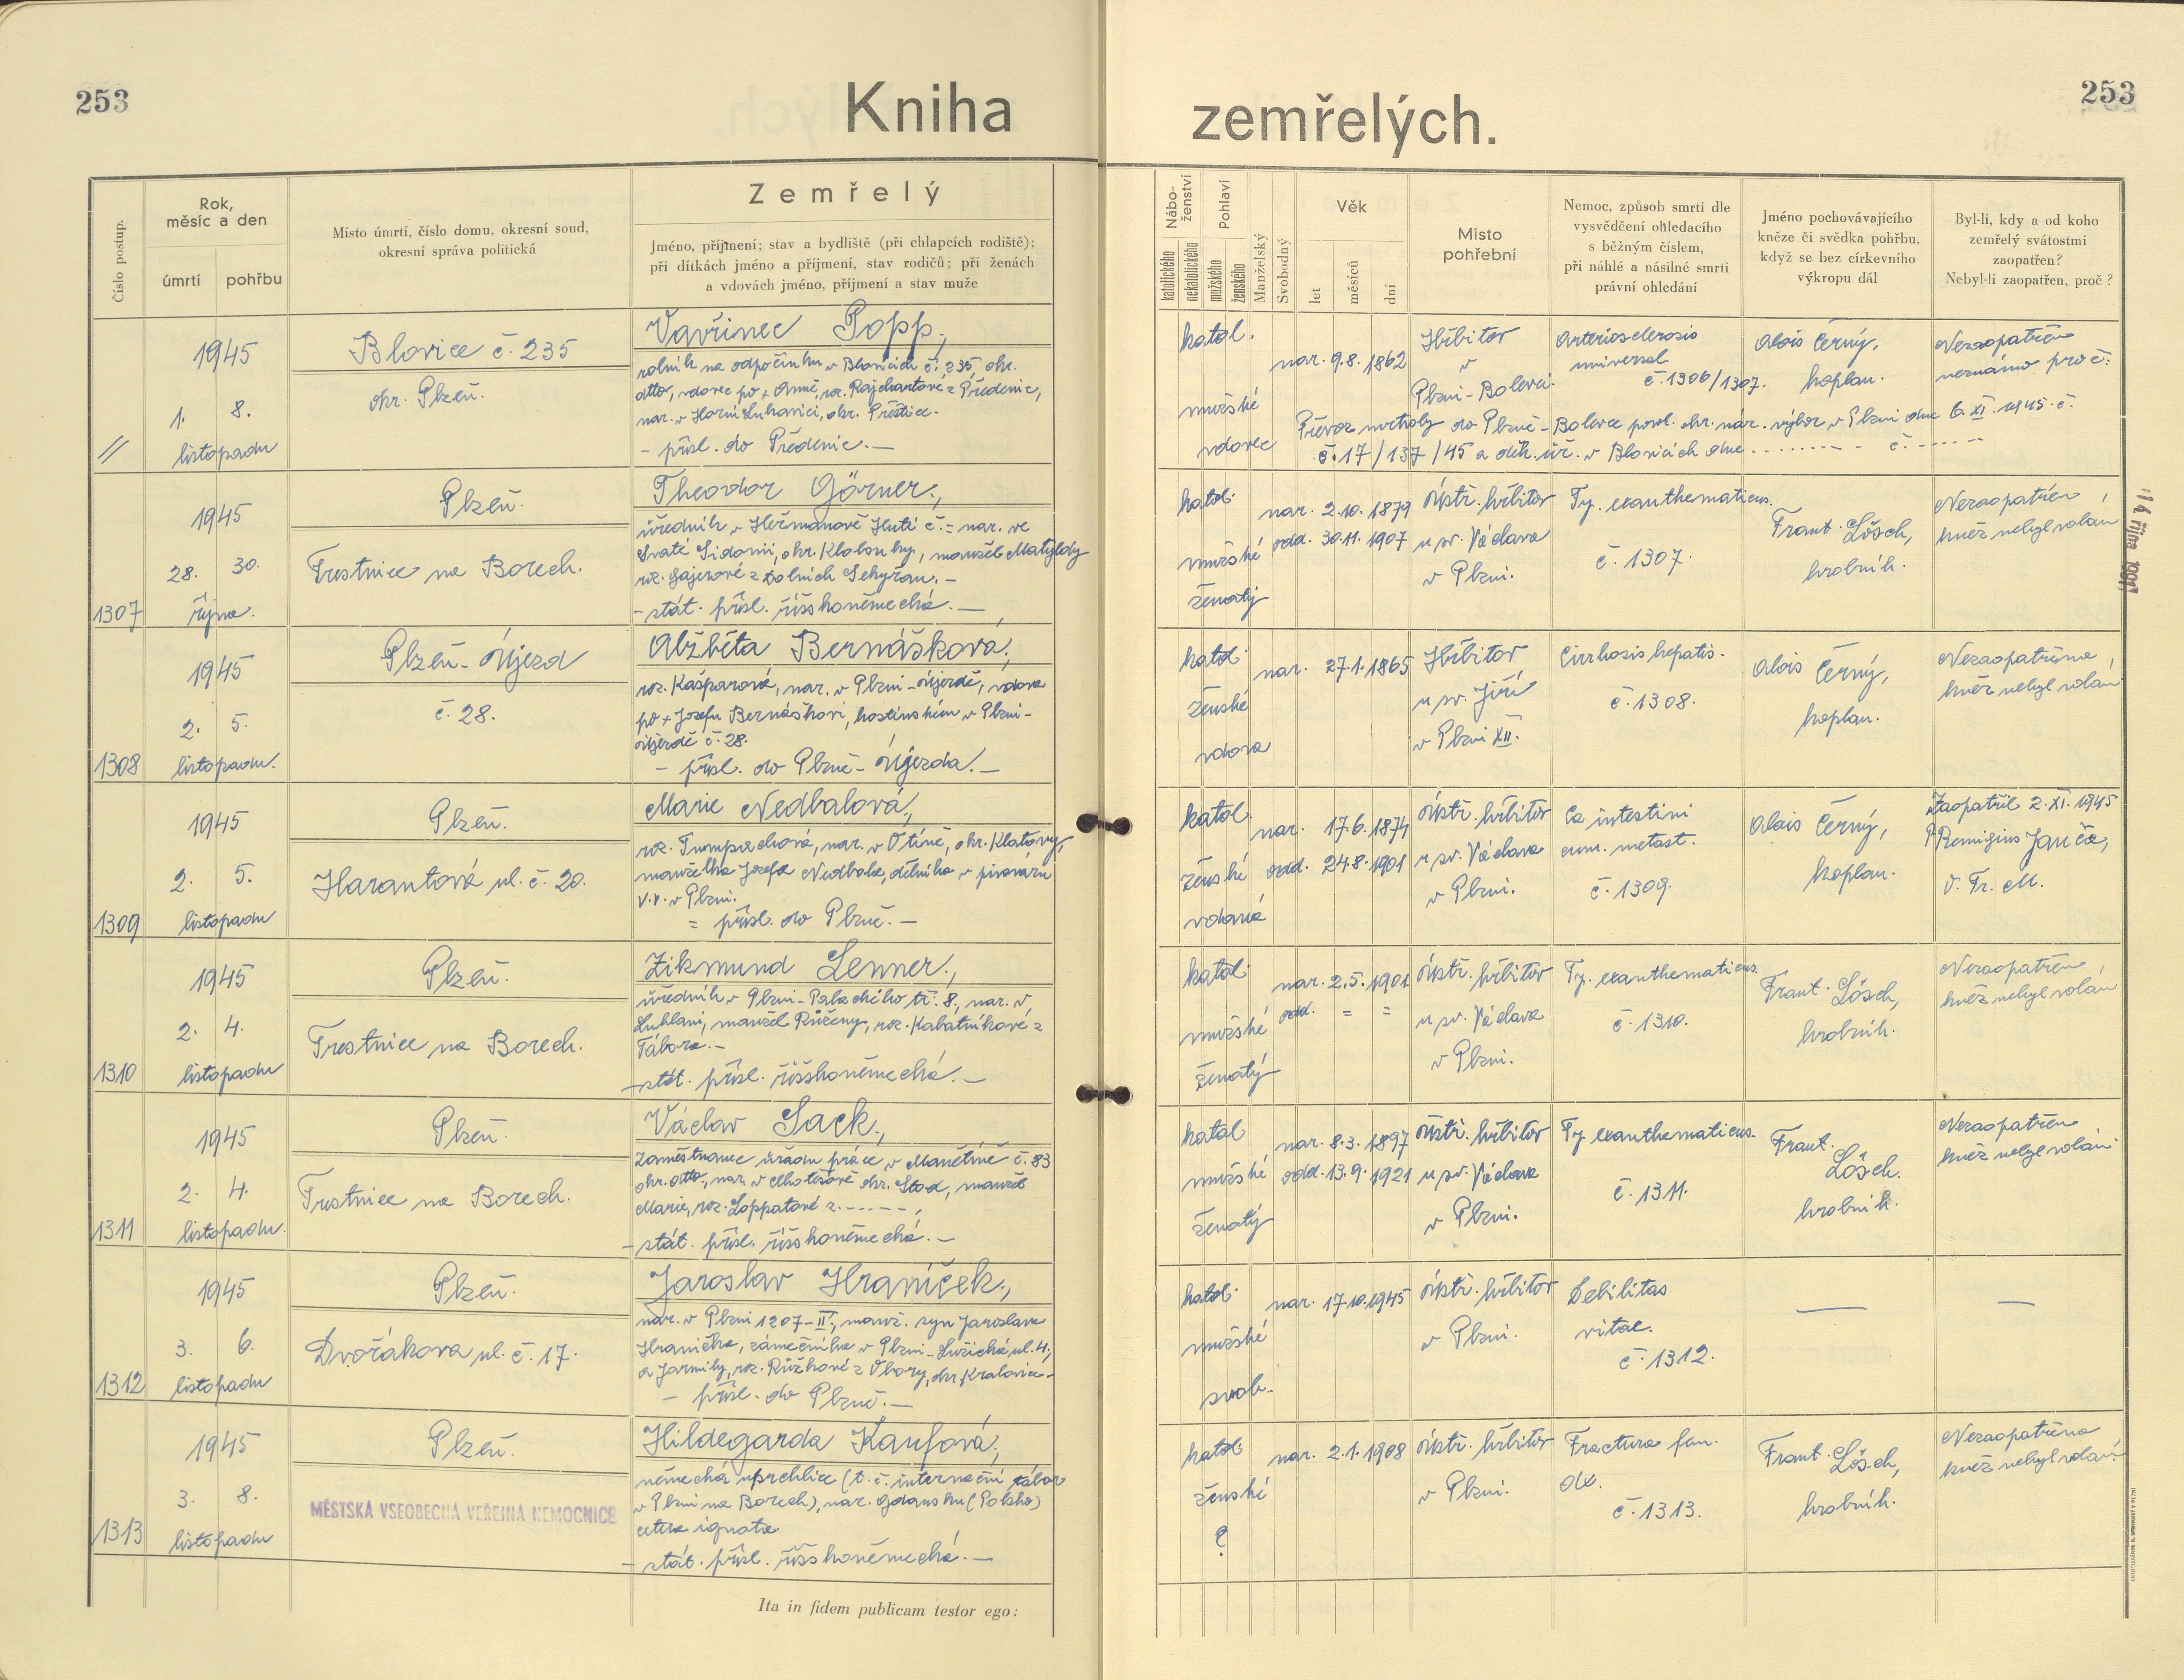 253
Kniha zemřelých.
253
Číslo postup.
Rok, měsíc a den
úmrtí
pohřbu
Místo úmrtí, číslo domu, okresní soud,
okresní správa politická
Zemřelý
Jméno, příjmení; stav a bydliště (při chlapcích rodiště);
při dítkách jméno a příjmení, stav rodičů; při ženách
a vdovách jméno, příjmení a stav muže
Nábo-
ženství
katolického
nekatolického
Pohlaví
mužského
ženského
Manželský
Svobodný
Věk
let
měsíců
dní
Místo
pohřební
Nemoc, způsob smrti dle
vysvědčení ohledacího
s běžným číslem,
při náhlé a násilné smrti
právní ohledání
Jméno pochovávajícího
kněze či svědka pohřbu,
když se bez církevního
výkropu dál
Byl-li, kdy a od koho
zemřelý svátostmi
zaopatřen?
Nebyl-li zaopatřen, proč?
//
1945
1. 8.
listopadu
Blovice č. 235
okr. Plzeň.
Vavřinec Popp,
rolník na odpočinku v Blovicích č. 235, okr.
dtto, vdovec po + Anně, roz. Rajchartové z Předenic,
nar. v Horní Lukavici, okr. Přeštice.
- přísl. do Předenic. -
katol.
mužské
vdovec
nar. 9.8. 1862
Hřbitov
v
Plzni-Bolevci.
Arteriosclerosis
universal.
č. 1306/1307.
Alois Černý,
koplan.
Nezaopatřen
neznámo proč.
Převoz mrtvoly do Plzně-Bolevce povol. okr. nár. výbor v Plzni dne 6. XI. 1945 č.
č. 17/137/45 a děk. úř. v Blovicích dne......... č. ......
1307
1945
28. 30.
října.
Plzeň.
Trestnice na Borech.
Theodor Görner,
úředník v Heřmanově Huti č. = nar. ve
Svaté Sidonii, okr. Klobouky, manžel Matyldy
roz. Gajerové z Dolních Sekyřan. -
- stát. přísl. říšskoněmecká. -
katol.
mužské
ženatý
nar. 2.10. 1879
odd. 30.11. 1907
Ústř. hřbitov
u sv. Václava
v Plzni.
Ty. exanthematicus.
č. 1307.
Frant. Lösch,
hrobník.
Nezaopatřen,
kněz nebyl volán
14. října 1991
1308
1945
2. 5.
listopadu.
Plzeň-Újezd
č. 28.
Alžběta Bernášková,
roz. Kašparová, nar. v Plzni-Újezdě, vdova
po + Josefu Bernáškovi, hostinském v Plzni-
Újezdě č. 28.
- přísl. do Plzně-Újezda. -
katol.
ženské
vdova
nar. 27.1. 1865
Hřbitov
u sv. Jiří
v Plzni XII.
Cirrhosis hepatis.
č. 1308.
Alois Černý,
koplan.
Nezaopatřena,
kněz nebyl volán
1309
1945
2. 5.
listopadu
Plzeň.
Harantová ul. č. 20.
Marie Nedbalová,
roz. Tumpachová, nar. v Otíně, okr. Klatovy,
manželka Josefa Nedbala, dělníka v pivováru
v.v. v Plzni.
= přísl. do Plzně. -
katol.
ženské
vdaná
nar. 17.6. 1874
odd. 24.8. 1901
Ústř. hřbitov
u sv. Václava
v Plzni.
Ca intestini
cum. metast.
č. 1309.
Alois Černý,
koplan.
Zaopatřil 2. XI. 1945
P. Remigius Janča,
O. Fr. M.
1310
1945
2. 4.
listopadu
Plzeň.
Trestnice na Borech.
Zikmund Lenner,
úředník v Plzni-Palackého tř. 8, nar. v
Lublani, manžel Růženy, roz. Kabátníkové z
Tábora. -
- stát. přísl. říšskoněmecká. -
katol.
mužské
ženatý
nar. 2.5. 1901
odd. = =
Ústř. hřbitov
u sv. Václava
v Plzni.
Ty. exanthematicus.
č. 1310.
Frant. Lösch,
hrobník.
Nezaopatřen,
kněz nebyl volán
1311
1945
2. 4.
listopadu.
Plzeň.
Trestnice na Borech.
Václav Sack,
zaměstnanec úřadu práce v Manětíně č. 83
okr. dtto, nar. v Chotěšově okr. Stod, manžel
Marie, roz. Loppatové z ------,
- stát. přísl. říšskoněmecká. -
katol
mužské
ženatý
nar. 8.3. 1897
odd. 13.9. 1921
Ústř. hřbitov
u sv. Václava
v Plzni.
Ty exanthematicus.
č. 1311.
Frant.
Lösch.
hrobník.
Nezaopatřen
kněz nebyl volán
1312
1945
3. 6.
listopadu
Plzeň.
Dvořákova ul. č. 17.
Jaroslav Hraníček,
nar. v Plzni 1207-II., manž. syn Jaroslava
Hraníčka, zámečníka v Plzni-Lužická ul. 4,
a Jarmily, roz. Růžkové z Obory, okr. Kralovice-
- přísl. do Plzně. -
katol.
mužské
svob.
nar. 17.10.1945
Ústř. hřbitov
v Plzni.
Debilitas
vitae.
č. 1312.
—
—
1313
1945
3. 8.
listopadu
Plzeň.
MĚSTSKÁ VŠEOBECNÁ VEŘEJNÁ NEMOCNICE
Hildegarda Kaufová,
německá uprchlice (t. č. internační tábor
v Plzni na Borech), nar. Gdansku (Polsko)
cetera ignota
- stát. přísl. říšskoněmecká. -
katol.
ženské
?
nar. 2.1. 1908
Ústř. hřbitov
v Plzni.
Fractura fem.
dx.
č. 1313.
Frant. Lösch,
hrobník.
Nezaopatřena
kněz nebyl volán
Ita in fidem publicam testor ego: